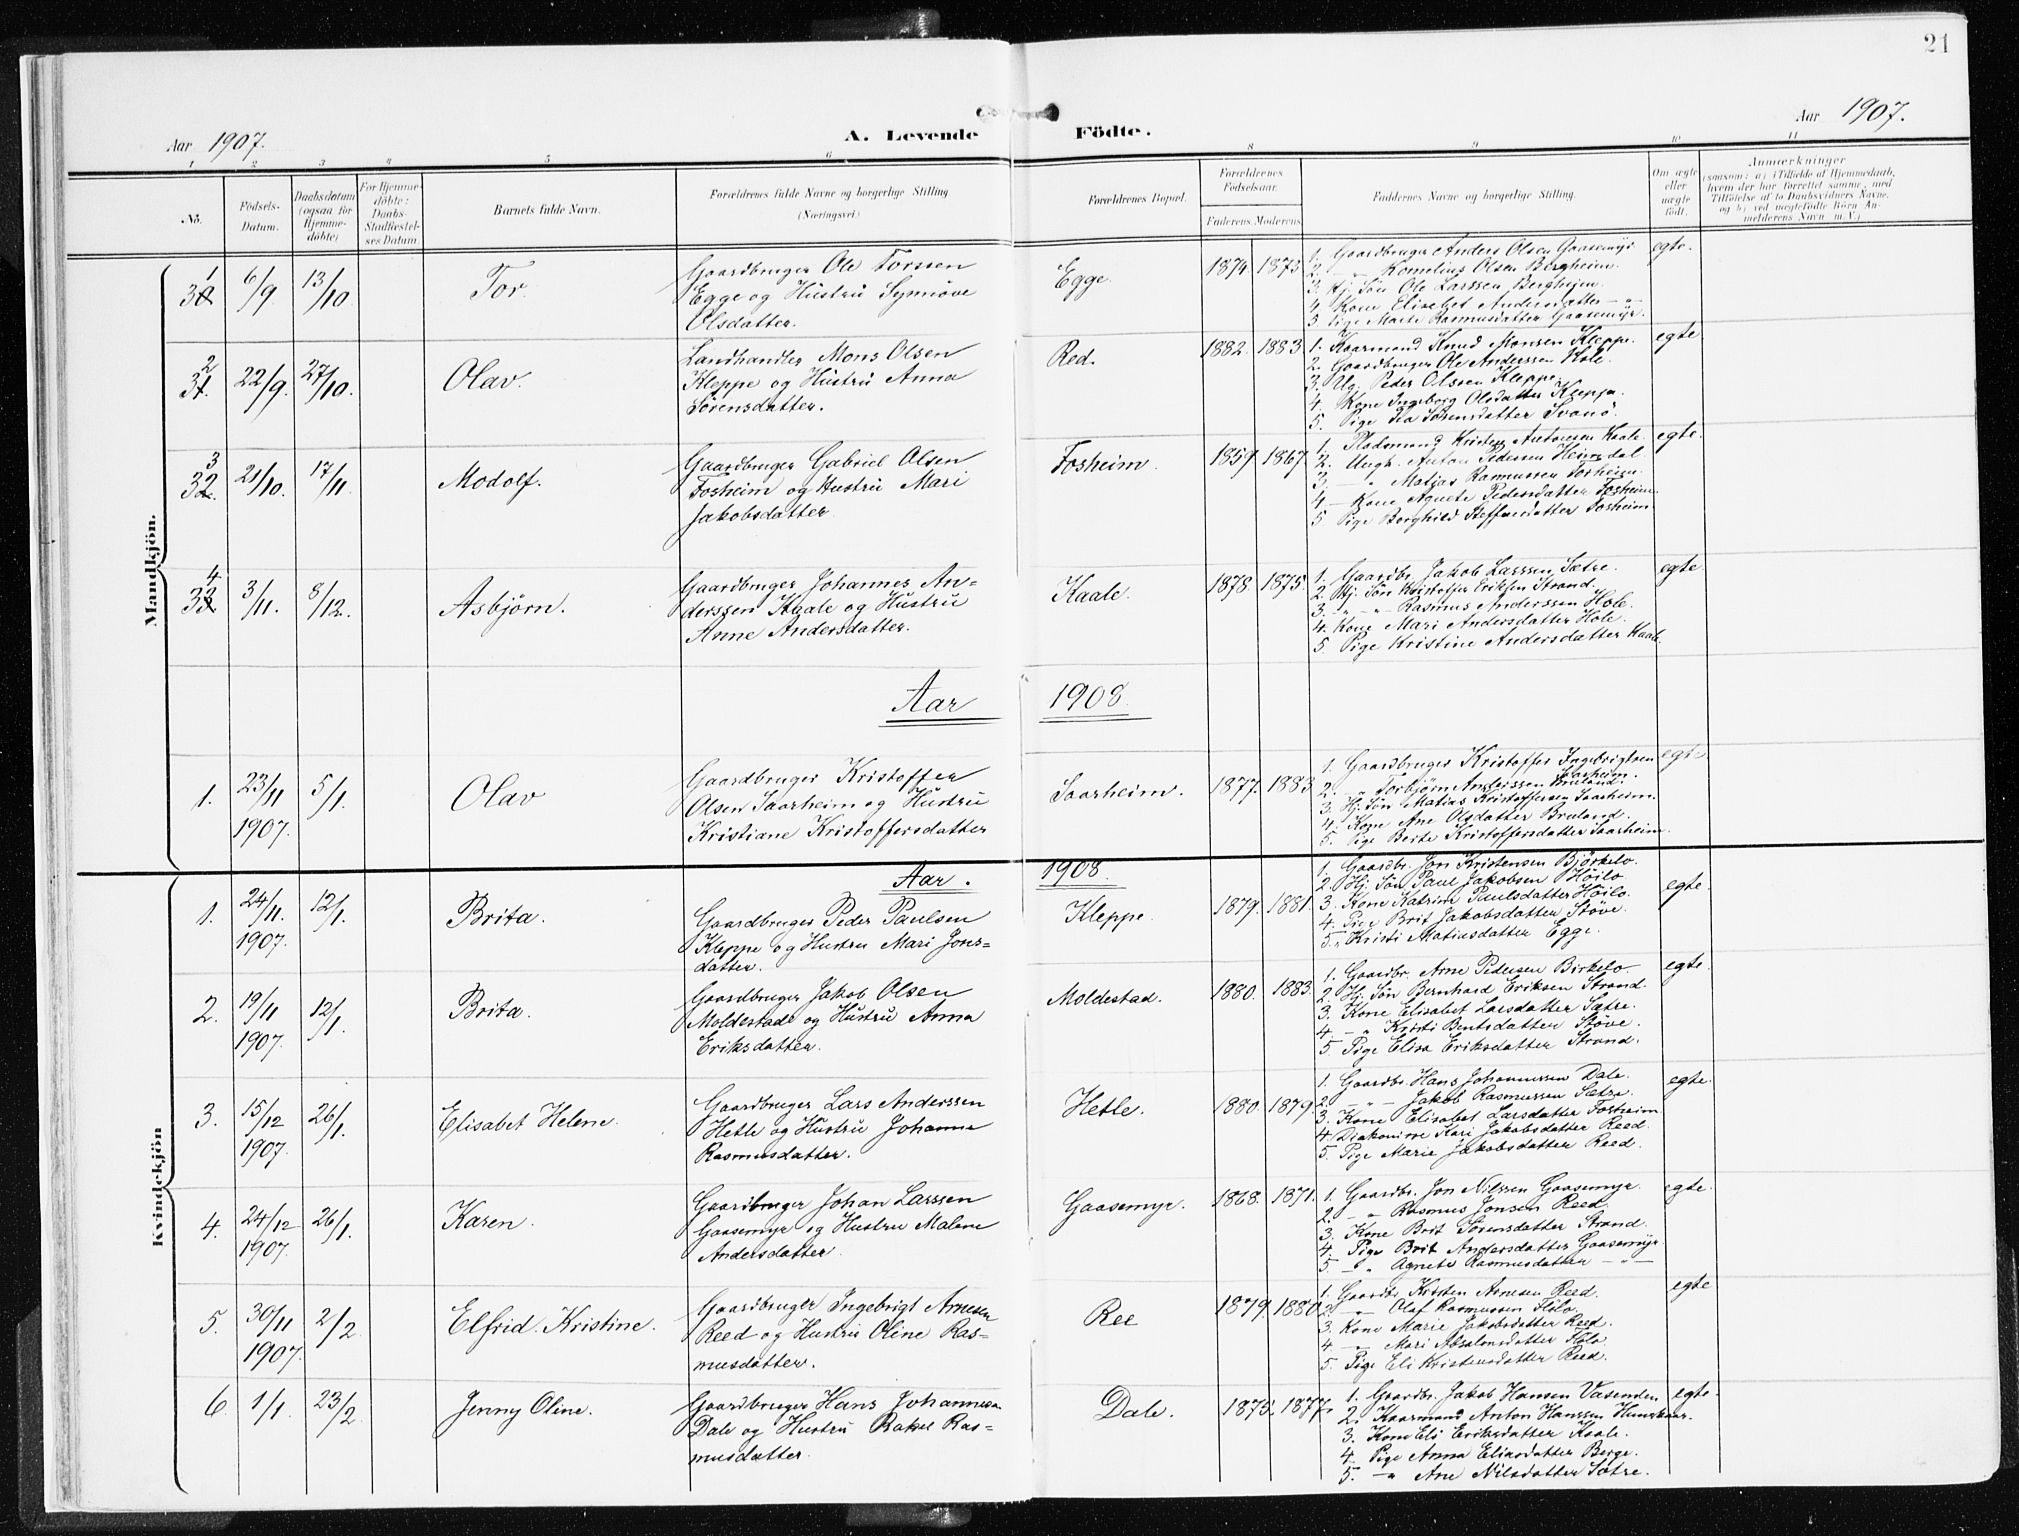 21
Aar 1907.
A. Levende Födte.
Aar 1907.
1 2 3 4 5 6 8 9 10 11
No.
Födsels-Datum.
Daabsdatum (ogsaa for Hjemmedöbte)
For Hjemmedöbte: Daabs-Stadfestelses Datum.
Barnets fulde Navn.
Forældrenes fulde Navne og borgerlige Stilling (Næringsvei)
Forældrenes Bopæl.
Forældrenes Födselsaar.
Faderens Moderens
Faddernes Navne og borgerlige Stilling.
Om ægte eller uægte födt.
Anmærkninger
(saasom: a) i Tilfælde af Hjemmedaab, hvem der har forrettet samme, med Tilföielse af to Daabsvidners Navne, og b) ved uægtefödte Börn Anmelderens Navn m. V.)
Mandkjön.
31 6/9 13/10 Tor.
Gaardbruger Ole Torssen
Egge og Hustru Synnöve
Olsdatter.
Egge. 1874 1873
1. Gaardbruger Anders Olsen Gaasemyr
2. -"- Kornelius Olsen Bergheim.
3. Hj. Søn Ole Larssen Bergheim.
4. Kone Elisabet Andersdatter -"-
5. Pige Marte Rasmusdatter Gaasemyr.
egte.
32 22/9. 27/10. Olav.
Landhandler Mons Olsen
Kleppe og Hustru Anna
Sörensdatter.
Red. 1882. 1883.
1. Kaarmand Knud Monsen Kleppe.
2. Gaardbruger Ole Anderssen Hole.
3. Ug. Peder Olssen Kleppe.
4. Kone Ingeborg Olsdatter Kleppe.
5. Pige Pia Sörensdatter Svanö.
egte
33 21/10. 17/11. Modolf.
Gaardbruger Gabriel Olsen
Fosheim og Hustru Mari
Jakobsdatter.
Fosheim. 1859 1867
1. Pladsmand Kristen Antonsen Kaale.
2. Ungk. Anton Pedersen Heimdal
3. -"- Matias Rasmussen Fosheim.
4. Kone Agnete Pedersdatter Fosheim.
5 Pige Borghild Steffensdatter Fosheim.
egte.
34 3/11. 8/12. Asbjörn.
Gaardbruger Johannes An-
derssen Kaale og Hustru
Anne Andersdatter.
Kaale. 1878. 1875.
1. Gaardbr. Jakob Larssen Sætre.
2. Hj. Søn Kristoffer Eriksen Strand.
3. -"- Rasmus Anderssen Hole.
4. Kone Mari Andersdatter Hole.
5. Pige Kristine Andersdatter Kaale.
egte.
Aar 1908.
1. 23/11 1907. 5/1. Olav
Gaardbruger Kristoffer
Olsen Saarheim og Hustru
Kristiane Kristoffersdatter
Saarheim. 1877. 1883
1. Gaardbruger Kristoffer Ingebrigtsen Saarheim.
2. -"- Torbjörn Anderssen Bruland.
3. Hj. Søn Matias Kristoffersen Saarheim.
4. Kone Ane Olsdatter Bruland.
5. Pige Berte Kristoffersdatter Saarheim.
egte
Kvindekjön
Aar. 1908.
1. 24/11. 1907. 12/1. Brita.
Gaardbruger Peder Paulsen
Kleppe og Hustru Mari Jons-
datter.
Kleppe. 1879. 1881.
1. Gaardbr. Jon Kristensen Björkelo.
2. Hj. Søn Paul Jakobsen Höilo
3. Kone Katrine Paulsdatter Höilo.
4. Pige Brit Jakobsdatter Støve.
5. " Kristi Matiasdatter Egge.
egte.
2. 19/11 1907. 12/1. Brita.
Gaardbruger Jakob Olsen
Moldestade og Hustru Anna
Eriksdatter.
Moldestad. 1880. 1883.
1. Gaardbr. Arne Pedersen Birkelo.
2. Hj. Søn Bernhard Eriksen Strand.
3. Kone Elisabet Larsdatter Sætre.
4. -"- Kristi Bentsdatter Støve.
5. Pige Elisa Eriksdatter Strand.
egte.
3. 15/12 1907. 26/1. Elisabet Helene.
Gaardbruger Lars Anderssen
Hetle og Hustru Johanne
Rasmusdatter.
Hetle. 1880. 1879.
1. Gaardbr. Hans Johannessen Dale.
2. -"- Jakob Rasmussen Sætre.
3. Kone Elisabet Larsdatter Fosheim
4. Diakonisse Kari Jakobsdatter Reed.
5. Pige Marie Jakobsdatter Reed.
egte.
4. 24/12 1907. 26/1. Karen.
Gaardbruger Johan Larssen
Gaasemyr og Hustru Malene
Andersdatter.
Gaasemyr. 1868. 1871.
1. Gaardbr. Jon Nilssen Gaasemyr.
2. -"- Rasmus Jonsen Reed.
3. Kone Brit Sörensdatter Strand.
4. Pige Brit Andersdatter Gaasemyr
5. -"- Agnete Rasmusdatter -"-
egte.
5. 30/11 1907. 2/2. Elfrid Kristine.
Gaardbruger Ingebrigt Arnesen
Reed og Hustru Oline Ras-
musdatter.
Ree 1879. 1880.
1. Gaardbr. Kristen Arnesen Reed.
2. -"- Olaf Rasmussen Flölo.
3. Kone Marie Jakobsdatter Reed.
4. -"- Mari Absalonsdatter Flölo.
5. Pige Eli Kristensdatter Reed.
egte
6. 1/1. 23/2. Jenny Oline.
Gaardbruger Hans Johannesen
Dale og Hustru Rakel Ras-
musdatter.
Dale. 1875. 1877.
1. Gaardbr. Jakob Hansen Vasenden
2. Kaarmand Anton Hanssen Hunskaar.
3. Kone Eli Eriksdatter Kaale.
4. Pige Anna Eliasdatter Berge.
5. -"- Ane Nilsdatter Sætre.
egte.